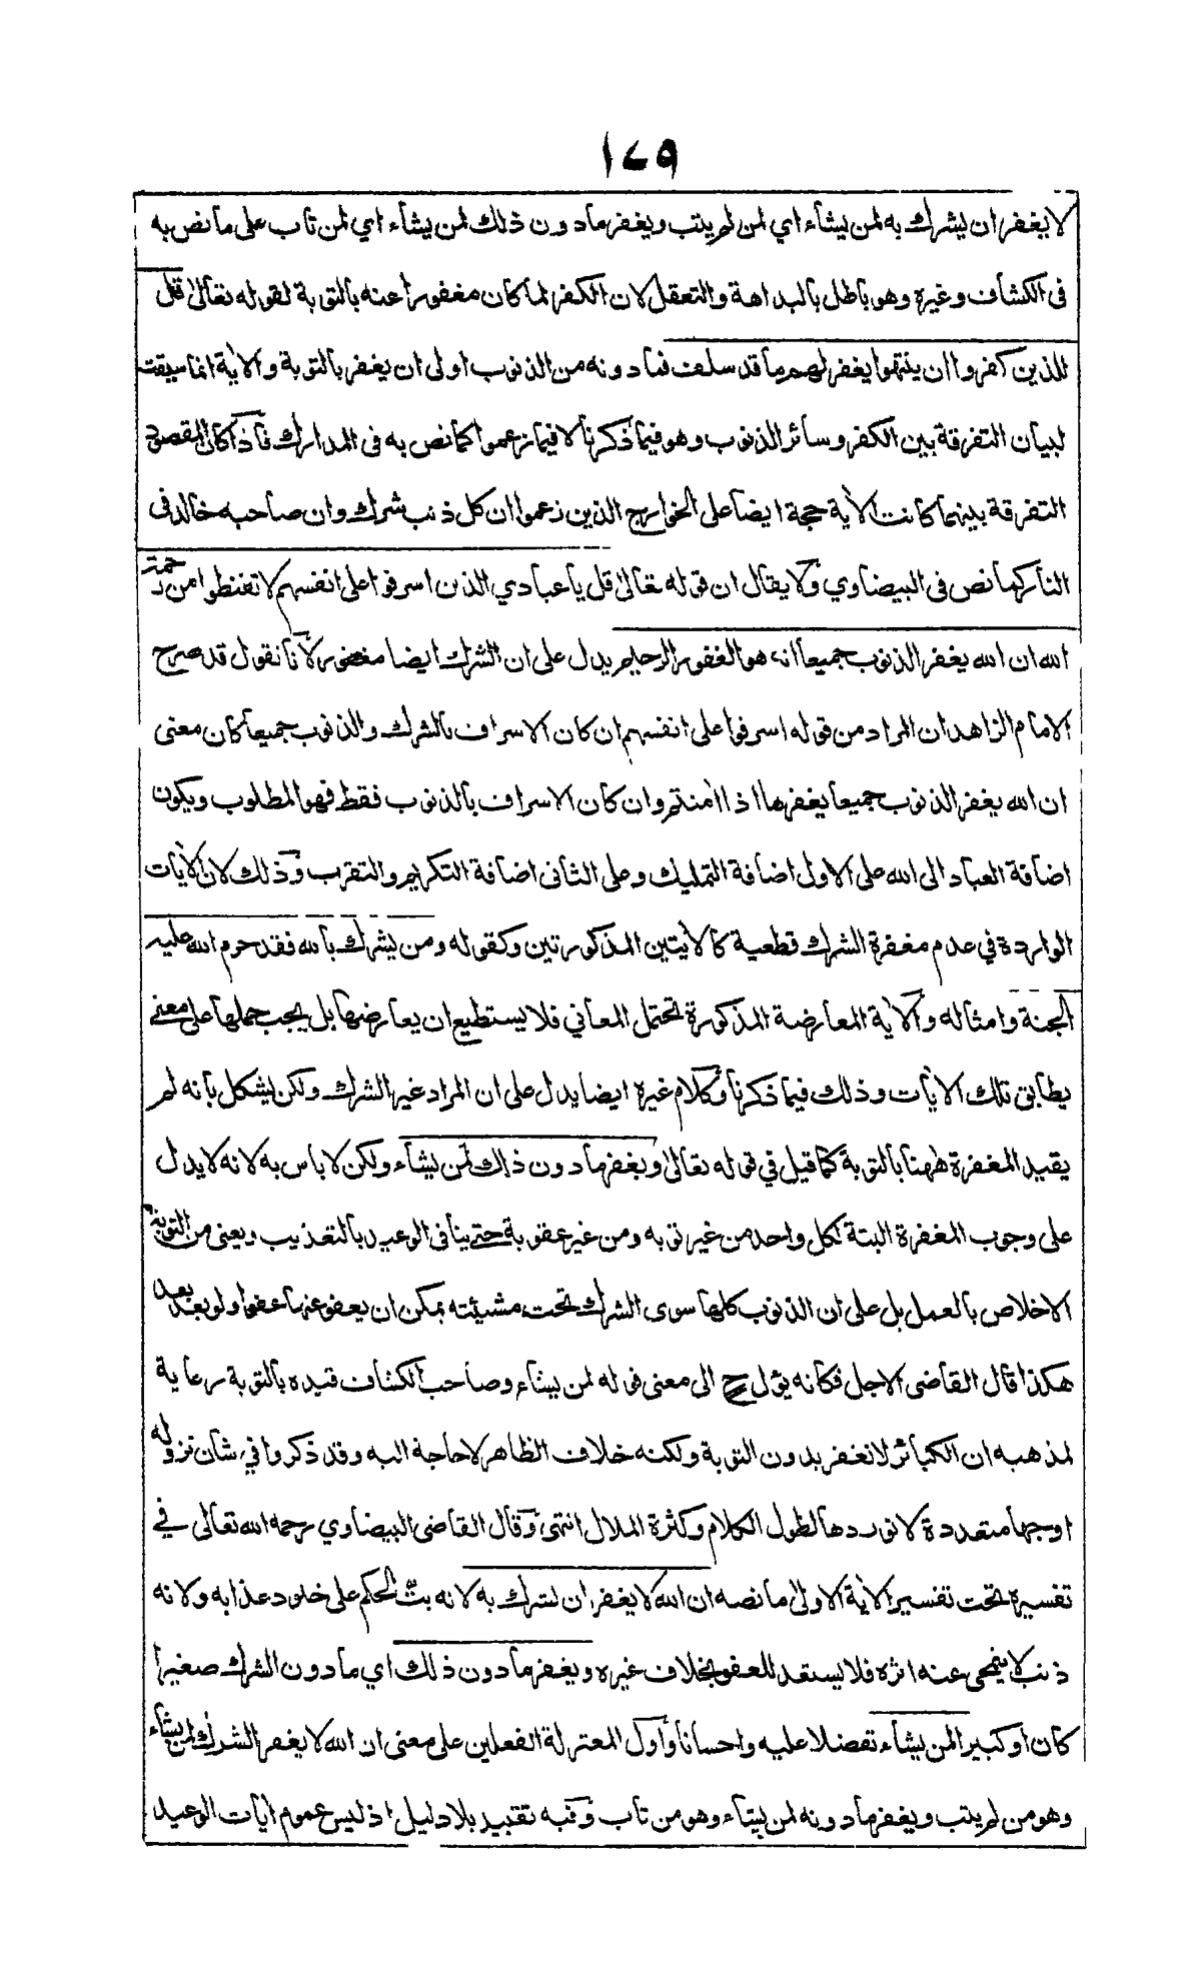 ١٧٩
لا يغفر ان يشرك به لمن يشاء اي لمن لم يتب ويغفر ما دون ذلك لمن يشاء اي لمن تاب على ما نص به
فى الكشاف وغيره وهو باطل بالبداهة والتعقل لان الكفر لما كان مغفورا عنه بالتوبة لقوله تعالى قل
للذين كفروا ان ينتهوا يغفر لهم ما قد سلف فما دونه من الذنوب اولى ان يغفر بالتوبة والآية انما سيقت
لبيان التفرقة بين الكفر وسائر الذنوب وهو فيما ذكرنا لا فيما زعموا كما نص به فى المدارك فاذا كان المقصود
التفرقة بينهما كانت الآية حجة ايضا على الخوارج الذين زعموا ان كل ذنب شرك وان صاحبه خالد فى
النار كما نص فى البيضاوي ولا يقال ان قوله تعالى قل يا عبادي الذين اسرفوا على انفسهم لا تقنطوا من رحمة
الله ان الله يغفر الذنوب جميعا انه هو الغفور الرحيم يدل على ان الشرك ايضا مغفور لانا نقول قد صرح
الامام الزاهد ان المراد من قوله اسرفوا على انفسهم ان كان الاسراف بالشرك والذنوب جميعا كان معنى
ان الله يغفر الذنوب جميعا يغفرها اذا اٰمنتم وان كان الاسراف بالذنوب فقط فهو المطلوب ويكون
اضافة العباد الى الله على الاول اضافة التمليك وعلى الثانى اضافة التكريم والتقرب وذلك لان الآيات
الواردة في عدم مغفرة الشرك قطعية كالآيتين المذكورتين وكقوله ومن يشرك بالله فقد حرم الله عليه
الجنة وامثاله والآية المعارضة المذكورة تحتمل المعاني فلا يستطيع ان يعارضها بل يجب حملها على معنى
يطابق تلك الآيات وذلك فيما ذكرنا وكلام غيره ايضا يدل على ان المراد غير الشرك ولكن يشكل بانه لم
يقيد المغفرة ههنا بالتوبة كما قيل في قوله تعالى ويغفر ما دون ذلك لمن يشاء ولكن لا باس به لانه لا يدل
على وجوب المغفرة البتة لكل واحد من غير توبه ومن غير عقوبة حتى ينافى الوعيد بالتعذيب ويعنى من التوبة
الاخلاص بالعمل بل على ان الذنوب كلها سوى الشرك تحت مشيئته يمكن ان يعفو عنها عفوا ولو بعد بعد
هكذا قال القاضى الاجل فكانه يؤل ح الى معنى قوله لمن يشاء وصاحب الكشاف قيده بالتوبة رعاية
لمذهبه ان الكبائر لا تغفر بدون التوبة ولكنه خلاف الظاهر لا حاجة اليه وقد ذكروا في شان نزوله
اوجها متعددة لا نوردها لطول الكلام وكثرة الملال انتهى وقال القاضى البيضاوي رحمه الله تعالى في
تفسيره تحت تفسير الآية الاولى ما نصه ان الله لا يغفر ان يشرك به لانه بتّ الحكم على خلود عذابه ولانه
ذنب لا ينمحى عنه اثره فلا يستعد للعفو بخلاف غيره ويغفر ما دون ذلك اي ما دون الشرك صغيرا
كان او كبيرا لمن يشاء تفضلا عليه واحسانا واول المعتزلة الفعلين على معنى ان الله لا يغفر الشرك لمن يشاء
وهو من لم يتب ويغفر ما دونه لمن يشاء وهو من تاب وفيه تقييد بلا دليل اذ ليس عموم اٰيات الوعيد